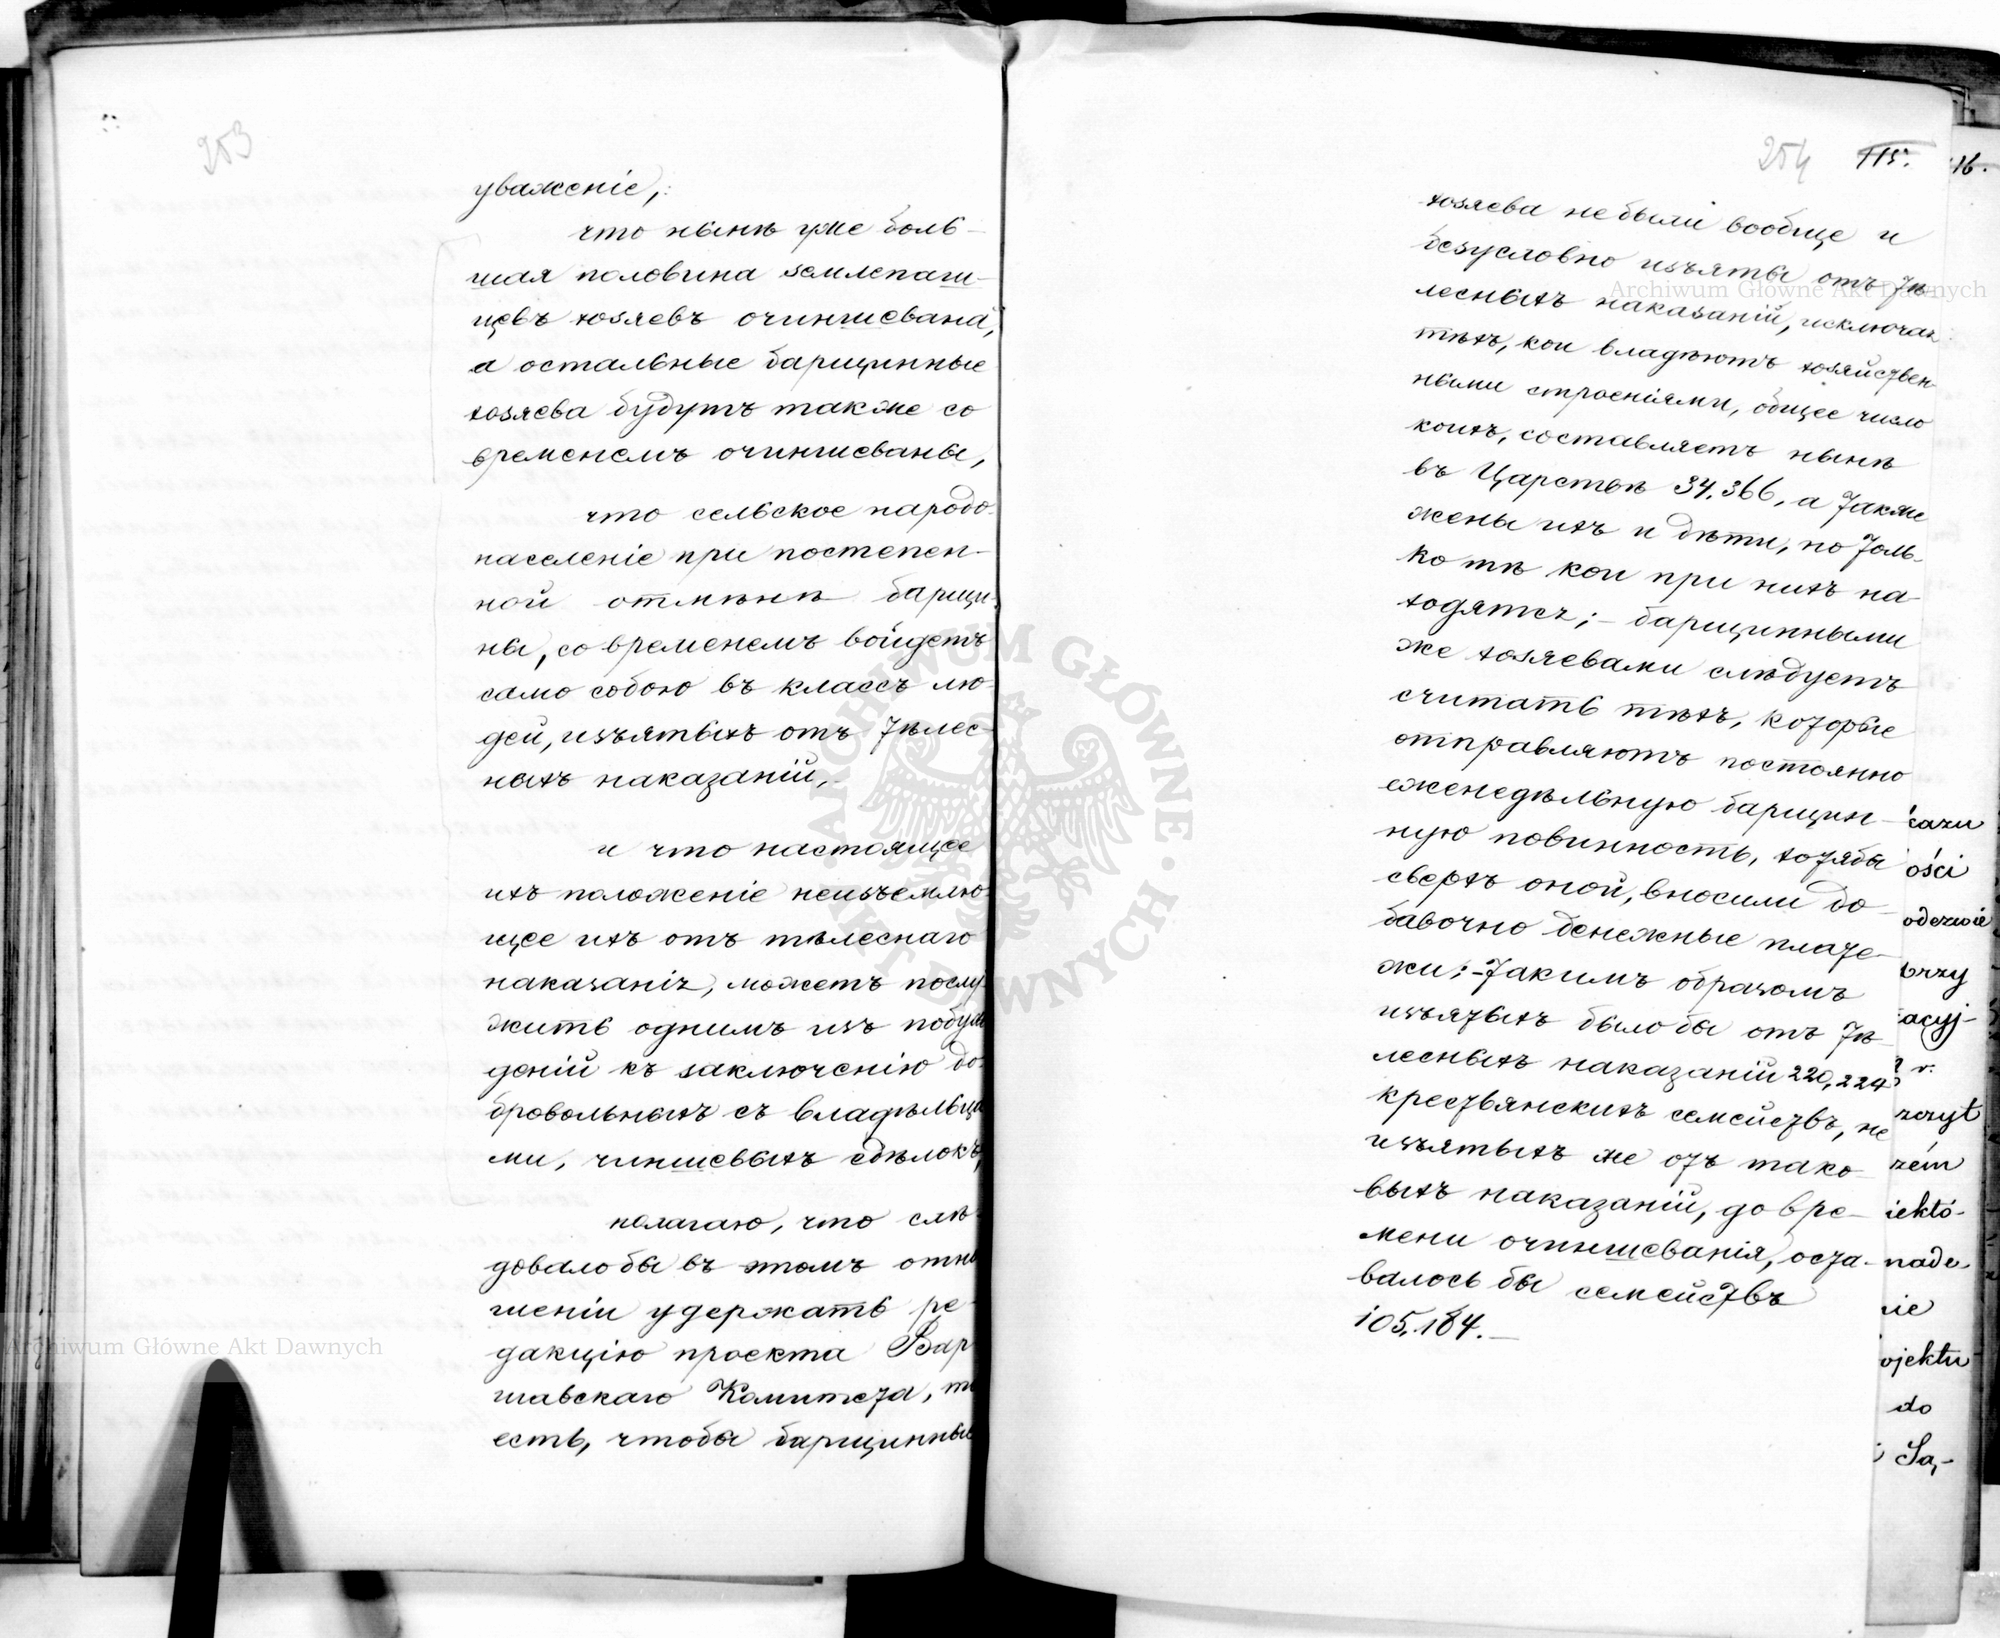 253
уваженіе,
что нынѣ уже боль-
шая половина землепаш-
цевъ хозяевъ очиншевана,
а остальные барщинные
хозяева будутъ также со
временемъ очиншеваны,
что сельское народо-
населеніе при постепен-
ной отмѣнѣ барщи-
ны, со временемъ войдетъ
само собою въ классъ лю-
дей, изъятыхъ отъ тѣлес-
ныхъ наказаній,
и что настоящее
ихъ положеніе неизъемлю-
щее ихъ отъ тѣлеснаго
наказанія, можетъ послу-
жить однимъ изъ побуж
деній къ заключенію до-
бровольныхъ съ владѣльца
ми, чиншевыхъ сдѣлокъ,
полагаю, что слѣ-
довало бы въ этомъ отно
шеніи удержать ре-
дакцію проекта Вар
шавскаго Комитета, то
есть, чтобы барщинные
254 115.
хозяева не были вообще и
безусловно изъяты отъ тѣ-
лесныхъ наказаній, исключая
тѣхъ, кои владѣютъ хозяйствен-
ными строеніями, общее число
коихъ, составляетъ нынѣ
въ Царствѣ 34.366, а также
жены ихъ и дѣти, но толь-
ко тѣ кои при нихъ на-
ходятся; - барщинными
же хозяевами слѣдуетъ
считать тѣхъ, которые
отправляютъ постоянно
еженедѣльную барщин-
ную повинность, хотябы
сверхъ оной, вносили до-
бавочно денежные плате-
жи; - такимъ образомъ
изъятыхъ было бы отъ тѣ-
лесныхъ наказаній 220,224
крестьянскихъ семействъ, не
изъятыхъ же отъ тако-
выхъ наказаній, до вре-
мени очиншеванія, оста-
валось бы семействъ
105.184.—
116.
kazu
ości
odezwie
przy
acyj-
r.
zeszyt
zém
iektó-
nade-
nie
ojektu
do
Są-